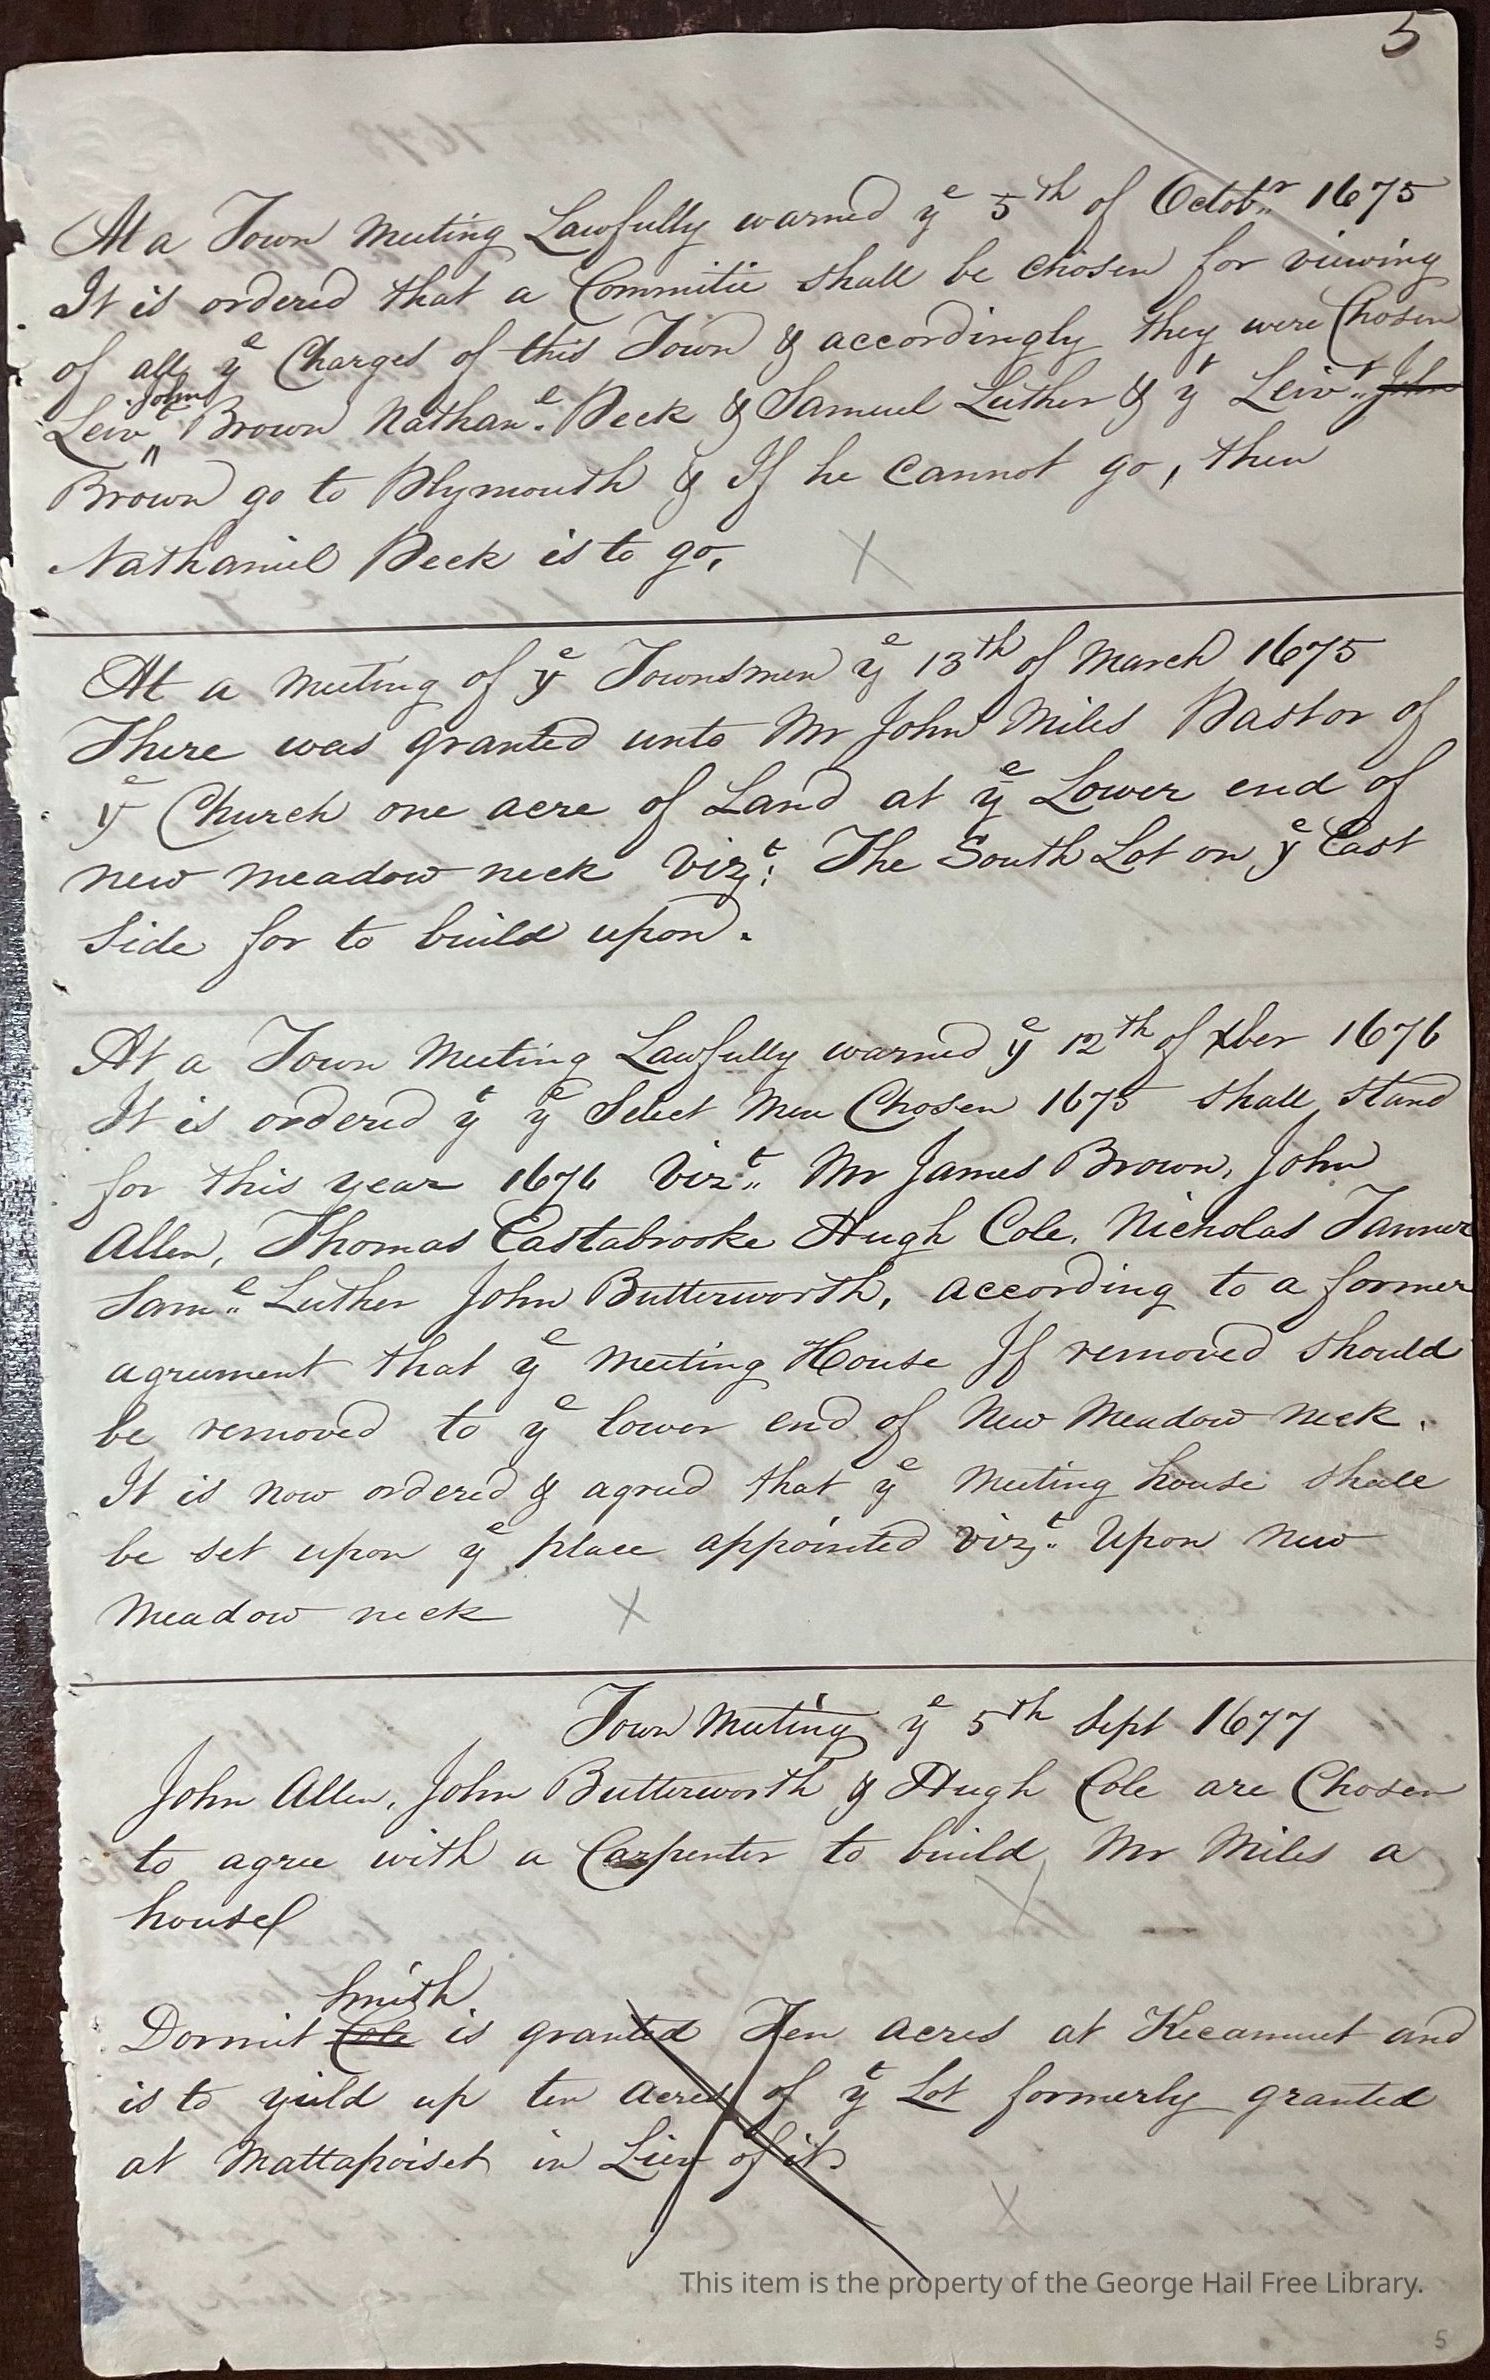 5
At a Town Meeting Lawfully warned yᵉ 5th of Octobr 1675
It is ordered that a Committie shall be chosen for viewing
of all yᵉ Charges of this Town & accordingly they were Chosen
John
Leiv" Brown Nathanᵉ. Peck & Samuel Luther & yᵗ Leivᵗ.. John
Brown go to Plymouth & If he cannot go, then
Nathaniel Peck is to go,
At a meeting of yᵉ Townsmen yᵉ 13th of March 1675
There was granted unto Mr John Miles Pastor of
yᵉ Church one acre of Land at yᵉ Lower end of
new meadow neck Vizᵗ: The South Lot on yᵉ East
Side for to build upon.
At a Town Meeting Lawfully warned yᵉ 12th of Xber 1676
It is ordered yᵗ yᵉ Select Men Chosen 1675 shall stand
for this year 1676 Vizᵗ.. Mr James Brown, John
Allen, Thomas Eastabrooke Hugh Cole, Nicholas Tanner
Samᵉ.. Luther John Butterworth, according to a former
agreement that yᵉ Meeting House If removed should
be removed to yᵉ lower end of New Meadow neck.
It is now ordered & agreed that yᵉ Meeting house shall
be set upon yᵉ place appointed vizᵗ.. Upon New
Meadow neck
Town Meeting yᵉ 5th Sept 1677
John Allen, John Butterworth & Hugh Cole are Chosen
to agree with a Carpenter to build Mr Miles a
house
Smith
Dermit Cole is granted Ten acres at Kecamuet and
is to yield up ten acres of yᵗ Lot formerly granted
at Mattapoiset in Lieu of it
This item is the property of the George Hail Free Library.
5